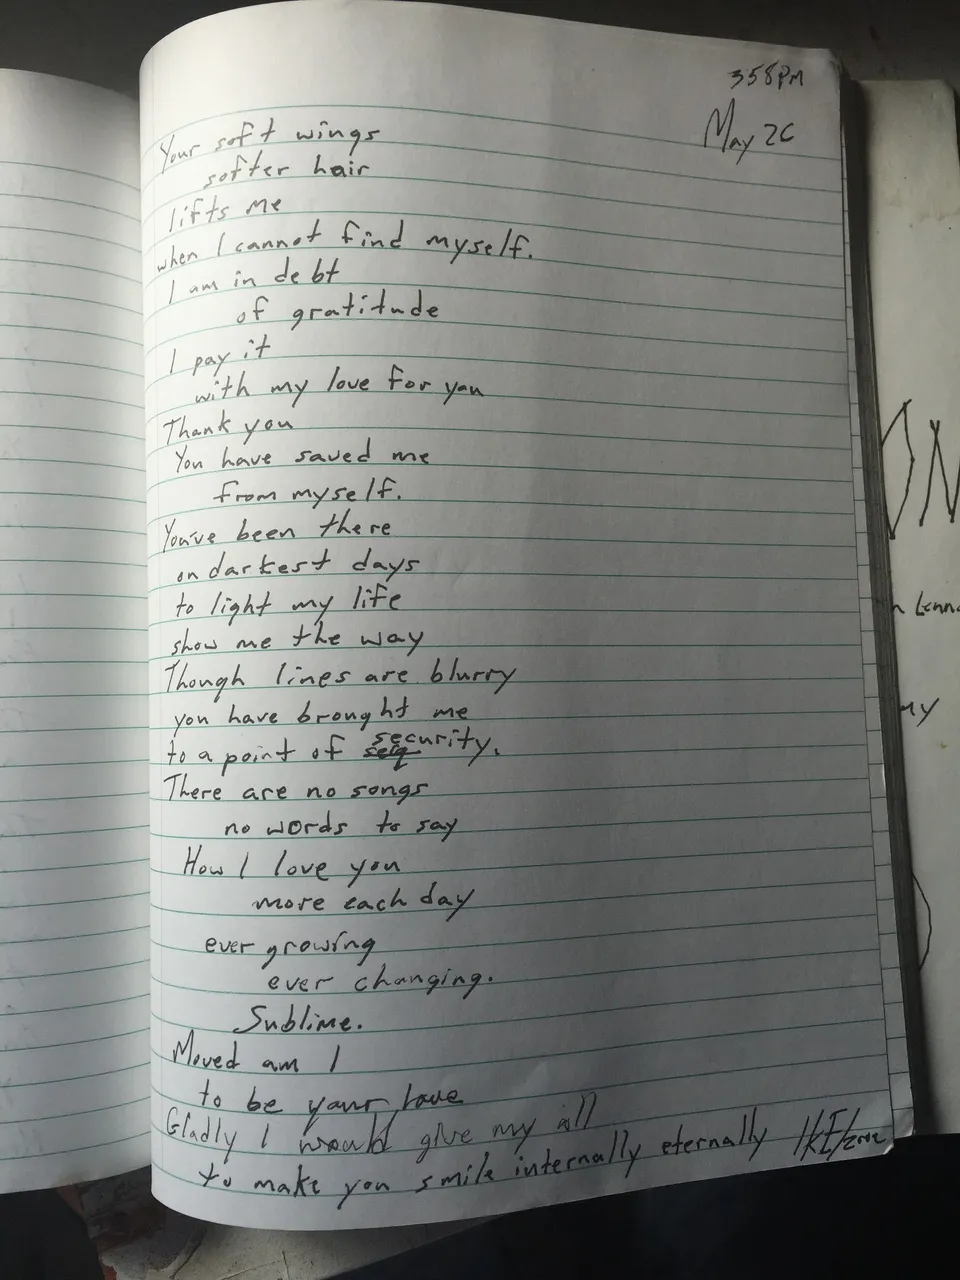 358PM
May 26
Your soft wings
softer hair
lifts me
when I cannot find myself.
I am in debt
of gratitude
I pay it
with my love for you
Thank you
You have saved me
from myself.
You've been there
on darkest days
to light my life
show me the way
Though lines are blurry
you have brought me
to a point of security.
There are no songs
no words to say
How I love you
more each day
ever growing
ever changing.
Sublime.
Moved am I
to be your love
Gladly I would give my all
to make you smile internally eternally